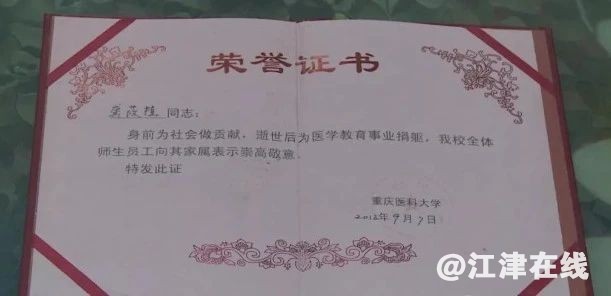 荣誉证书
同志：
身前为社会做贡献，逝世后为医学教育事业捐躯，我校全体
师生员工向其家属表示崇高敬意．
特发此证
重庆医科大学
2012年9月7日
@江津在线